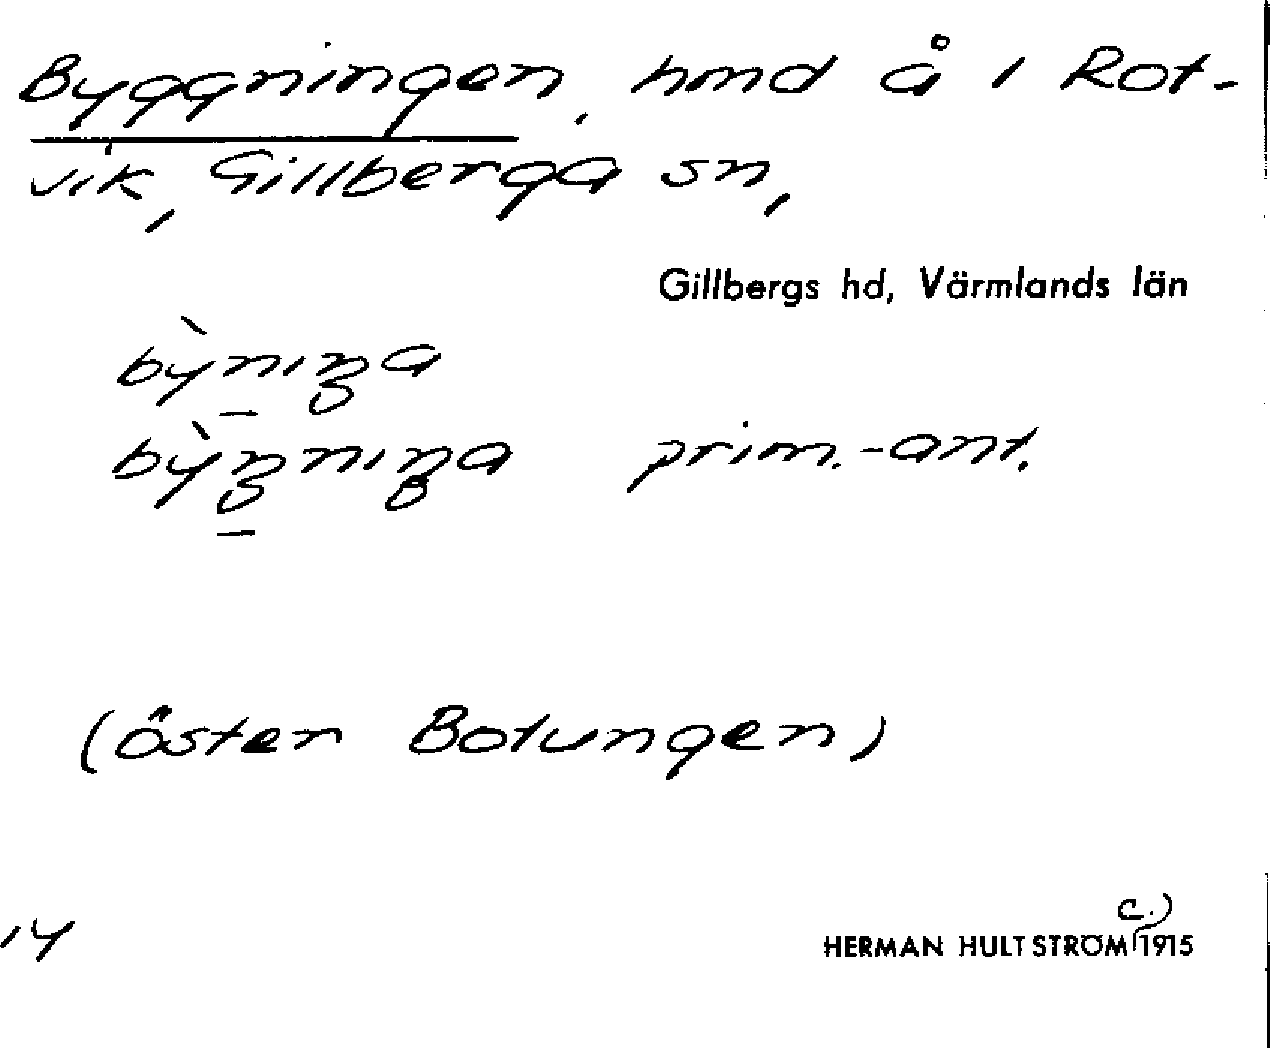 Byggningen, hmd å i Rot-
vik, Gillberga sn,
Gillbergs hd, Värmlands län
bỳniŋa
bỳŋniŋa prim.-ant.
(öster Botungen)
14
c.)
HERMAN HULTSTRÖM 1915